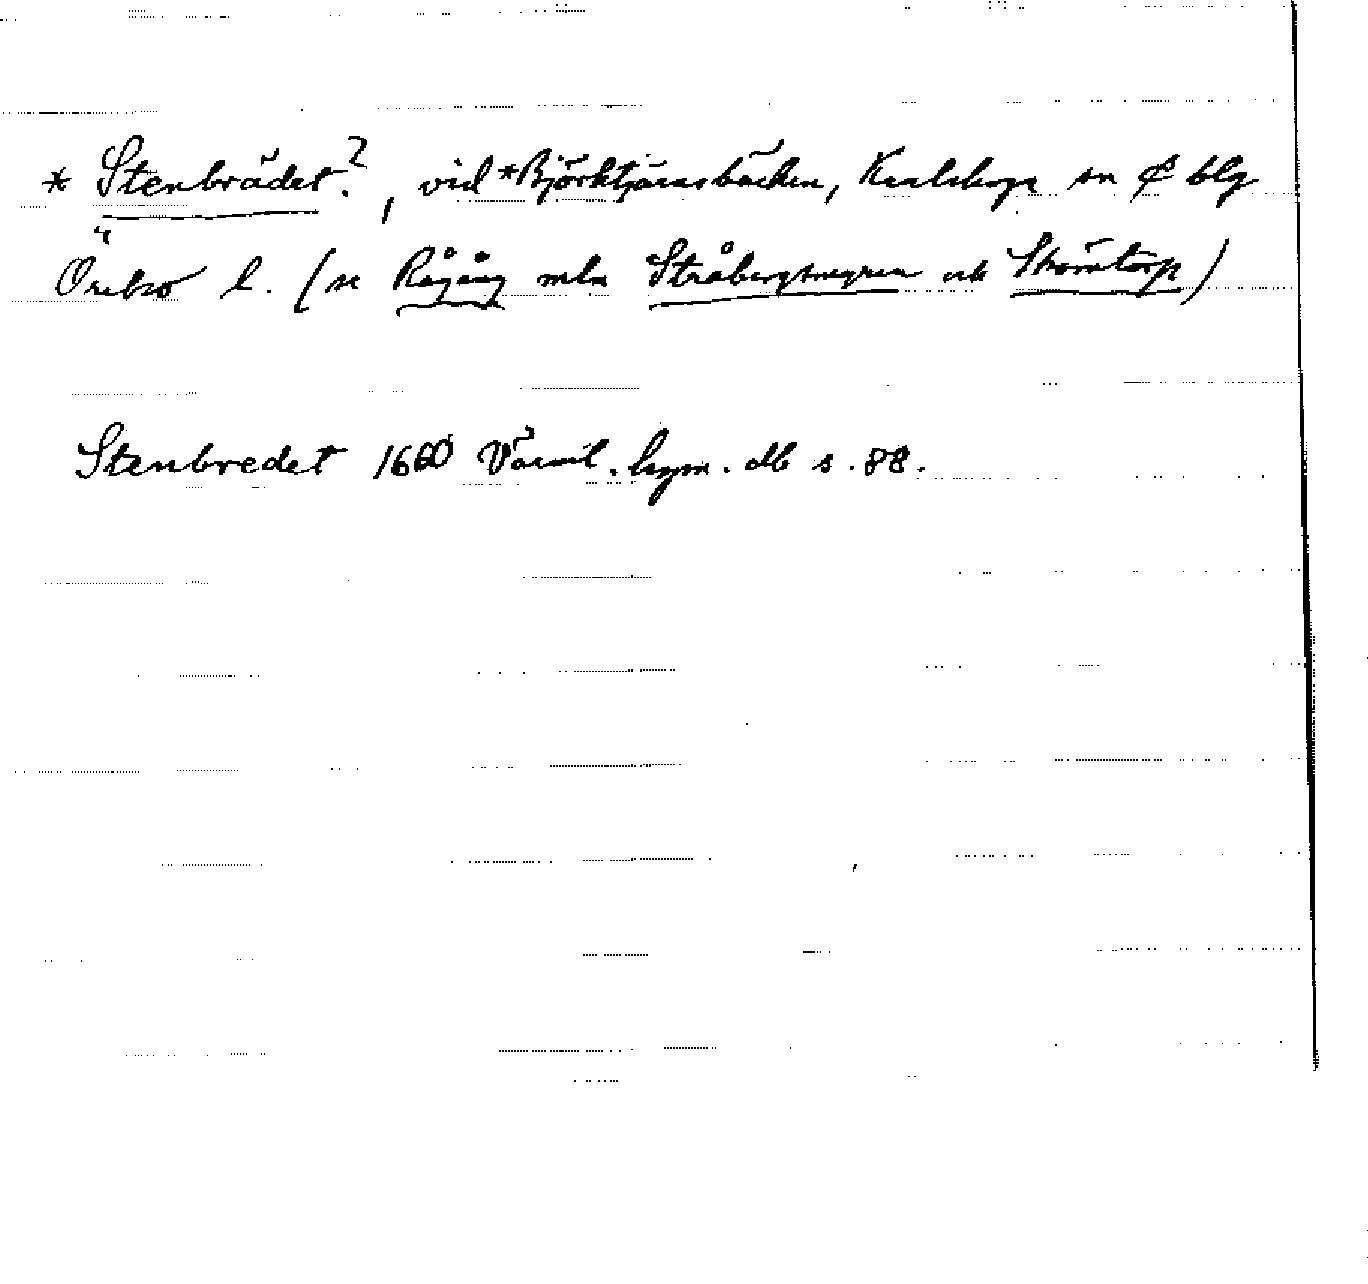 * Stenbrädet?, vid *Björktjärnsbäcken, Karlskoga sn & blg
Örebro l. (se Rågång mln Stråbergsmyren och Strömtorp)
Stenbredet 1660 Värml. bgm. db s. 88.